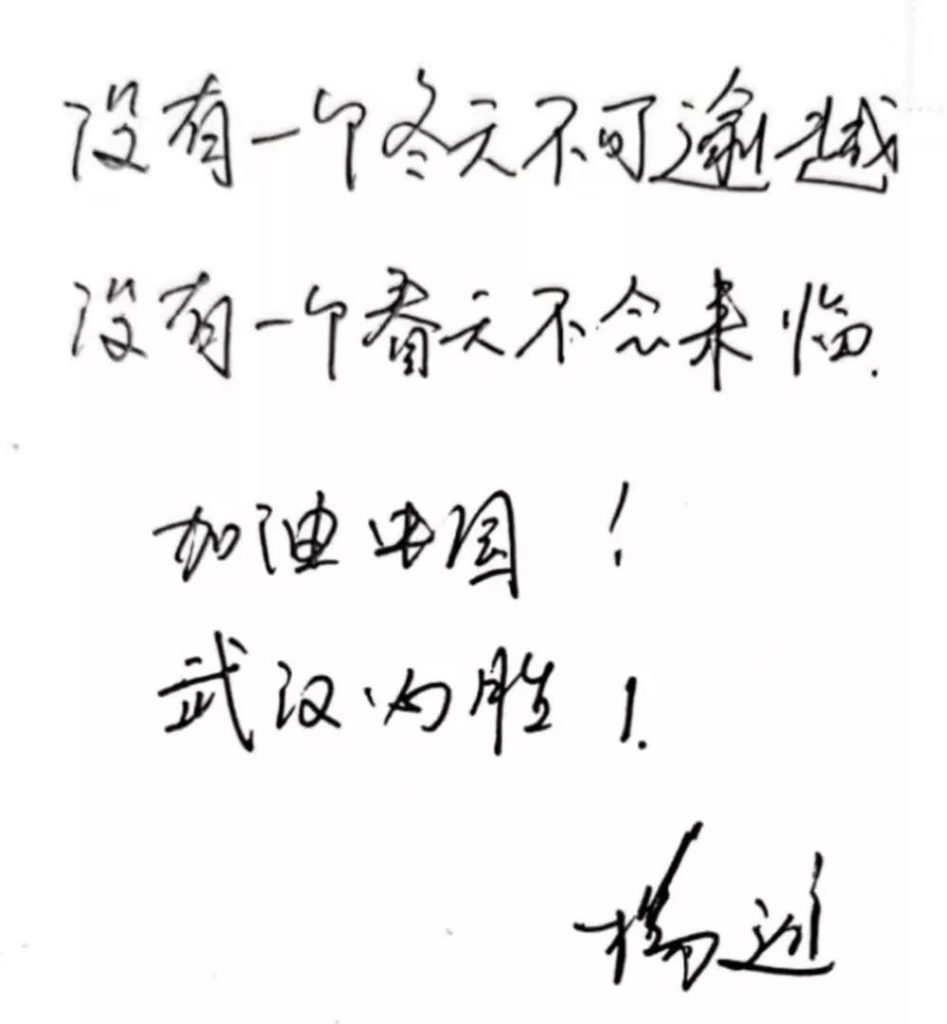 没有一个冬天不可逾越
没有一个春天不会来临.
加油中国!
武汉必胜!